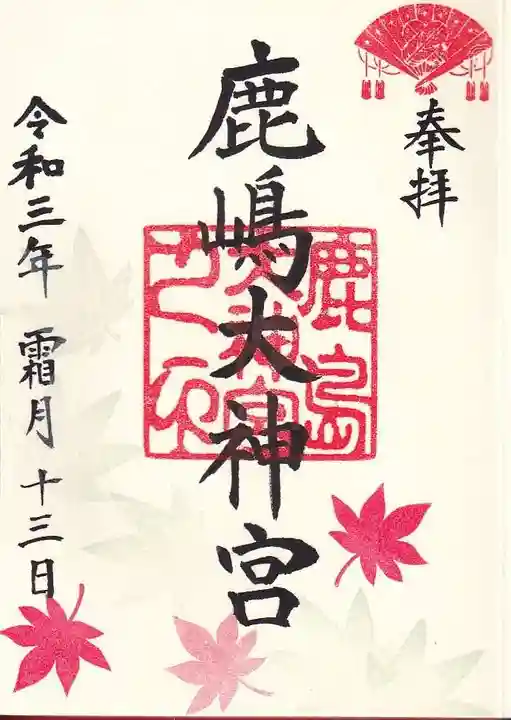 奉拝
鹿嶋大神宮
鹿島
大神宮
令和三年 霜月 十三日